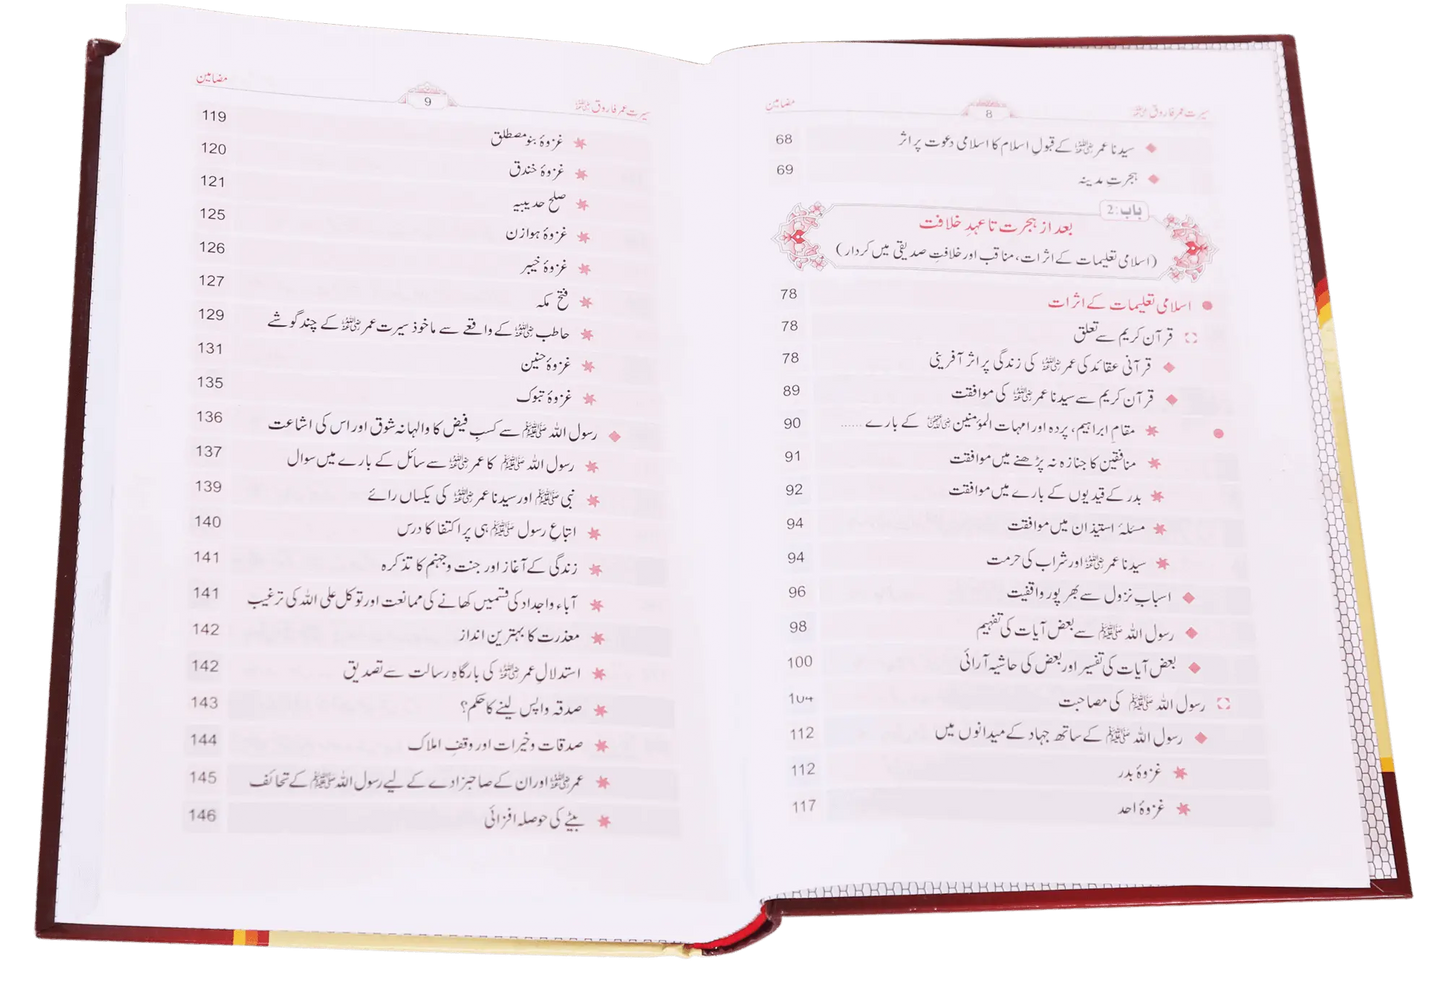 سیرت عمر فاروق رضی اللہ عنہ 8 مضامین
سیدنا عمر رضی اللہ عنہ کے قبولِ اسلام کا اسلامی دعوت پر اثر 68
ہجرتِ مدینہ 69
باب: 2
بعد از ہجرت تا عہدِ خلافت
(اسلامی تعلیمات کے اثرات، مناقب اور خلافت صدیقی میں کردار)
اسلامی تعلیمات کے اثرات 78
قرآن کریم سے تعلق 78
قرآنی عقائد کی عمر رضی اللہ عنہ کی زندگی پر اثر آفرینی 78
قرآن کریم سے سیدنا عمر رضی اللہ عنہ کی موافقت 89
مقامِ ابراہیم، پردہ اور امہات المؤمنین رضی اللہ عنہن کے بارے ...... 90
منافقین کا جنازہ نہ پڑھنے میں موافقت 91
بدر کے قیدیوں کے بارے میں موافقت 92
مسئلۂ استیذان میں موافقت 94
سیدنا عمر رضی اللہ عنہ اور شراب کی حرمت 94
اسبابِ نزول سے بھرپور واقفیت 96
رسول اللہ ﷺ سے بعض آیات کی تفہیم 98
بعض آیات کی تفسیر اور بعض کی حاشیہ آرائی 100
رسول اللہ ﷺ کی مصاحبت 104
رسول اللہ ﷺ کے ساتھ جہاد کے میدانوں میں 112
غزوۂ بدر 112
غزوۂ احد 117
سیرت عمر فاروق رضی اللہ عنہ 9 مضامین
غزوۂ بنو مصطلق 119
غزوۂ خندق 120
صلح حدیبیہ 121
غزوۂ ہوازن 125
غزوۂ خیبر 126
فتح مکہ 127
حاطب رضی اللہ عنہ کے واقعے سے ماخوذ سیرت عمر رضی اللہ عنہ کے چند گوشے 129
غزوۂ حنین 131
غزوۂ تبوک 135
رسول اللہ ﷺ سے کسبِ فیض کا والہانہ شوق اور اس کی اشاعت 136
رسول اللہ ﷺ کا عمر رضی اللہ عنہ سے سائل کے بارے میں سوال 137
نبی ﷺ اور سیدنا عمر رضی اللہ عنہ کی یکساں رائے 139
اتباعِ رسول ﷺ ہی پر اکتفا کا درس 140
زندگی کے آغاز اور جنت و جہنم کا تذکرہ 141
آباء و اجداد کی قسمیں کھانے کی ممانعت اور توکل علی اللہ کی ترغیب 141
معذرت کا بہترین انداز 142
استدلالِ عمر رضی اللہ عنہ کی بارگاہِ رسالت سے تصدیق 142
صدقہ واپس لینے کا حکم؟ 143
صدقات و خیرات اور وقفِ املاک 144
عمر رضی اللہ عنہ اور ان کے صاحبزادے کے لیے رسول اللہ ﷺ کے تحائف 145
بیٹے کی حوصلہ افزائی 146